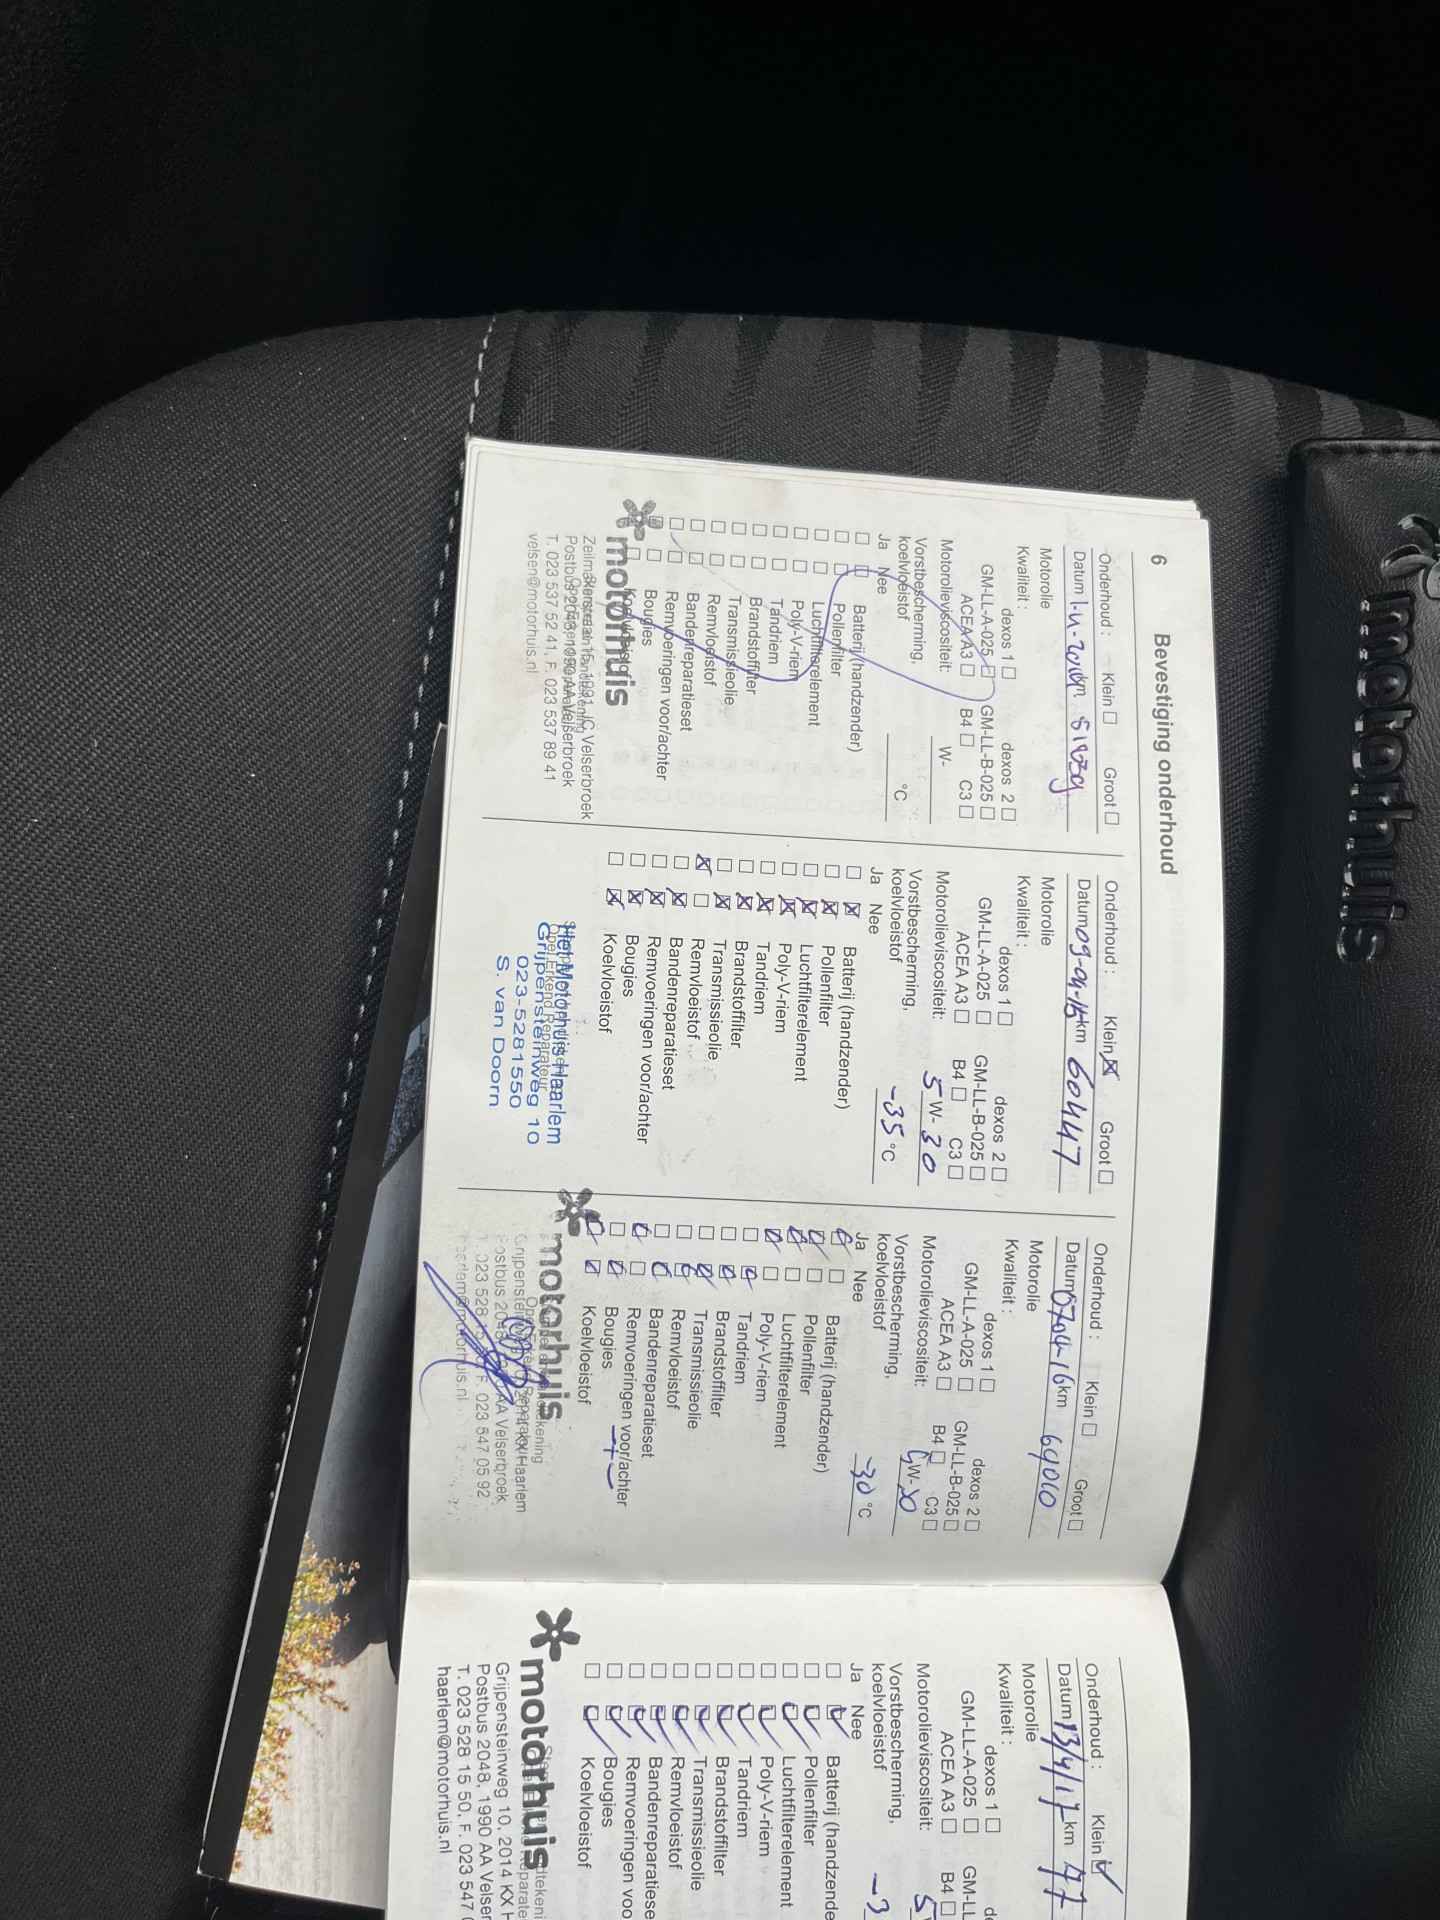 motorhuis
6 Bevestiging onderhoud
Onderhoud : Klein Groot
Datum km
Motorolie
Kwaliteit :
dexos 1 dexos 2
GM-LL-A-025 GM-LL-B-025
ACEA A3 B4 C3
Motorolieviscositeit: W-
Vorstbescherming,
koelvloeistof °C
Ja Nee
Batterij (handzender)
Pollenfilter
Luchtfilterelement
Poly-V-riem
Tandriem
Brandstoffilter
Transmissieolie
Remvloeistof
Bandenreparatieset
Remvoeringen voor/achter
Bougies
Koelvloeistof
motorhuis
1991 JC Velserbroek
Postbus 2048, 1990 AA Velserbroek
T. 023 537 52 41, F. 023 537 89 41
velsen@motorhuis.nl
Onderhoud : Klein Groot
Datum 09-04-15 km 60447
Motorolie
Kwaliteit :
dexos 1 dexos 2
GM-LL-A-025 GM-LL-B-025
ACEA A3 B4 C3
Motorolieviscositeit: 5 W- 30
Vorstbescherming,
koelvloeistof -35 °C
Ja Nee
Batterij (handzender)
Pollenfilter
Luchtfilterelement
Poly-V-riem
Tandriem
Brandstoffilter
Transmissieolie
Remvloeistof
Bandenreparatieset
Remvoeringen voor/achter
Bougies
Koelvloeistof
Het Motorhuis Haarlem
Opel Erkend Reparateur
Grijpensteinweg 10
023-5281550
S. van Doorn
Onderhoud : Klein Groot
Datum 0704-16 km 69010
Motorolie
Kwaliteit :
dexos 1 dexos 2
GM-LL-A-025 GM-LL-B-025
ACEA A3 B4 C3
Motorolieviscositeit: W-
Vorstbescherming,
koelvloeistof -30 °C
Ja Nee
Batterij (handzender)
Pollenfilter
Luchtfilterelement
Poly-V-riem
Tandriem
Brandstoffilter
Transmissieolie
Remvloeistof
Bandenreparatieset
Remvoeringen voor/achter
Bougies
Koelvloeistof
motorhuis
KX Haarlem
AA Velserbroek
F. 023 547 05 92
Onderhoud : Klein
Datum 13/4/17 km 77
Motorolie
Kwaliteit :
dexos 1 de
GM-LL-A-025 GM-LL
ACEA A3 B4
Motorolieviscositeit: 5
Vorstbescherming,
koelvloeistof -3
Ja Nee
Batterij (handzende
Pollenfilter
Luchtfilterelement
Poly-V-riem
Tandriem
Brandstoffilter
Transmissieolie
Remvloeistof
Bandenreparatiese
Remvoeringen voo
Bougies
Koelvloeistof
motorhuis
Grijpensteinweg 10, 2014 KX H
Postbus 2048, 1990 AA Velser
T. 023 528 15 50, F. 023 547 0
haarlem@motorhuis.nl